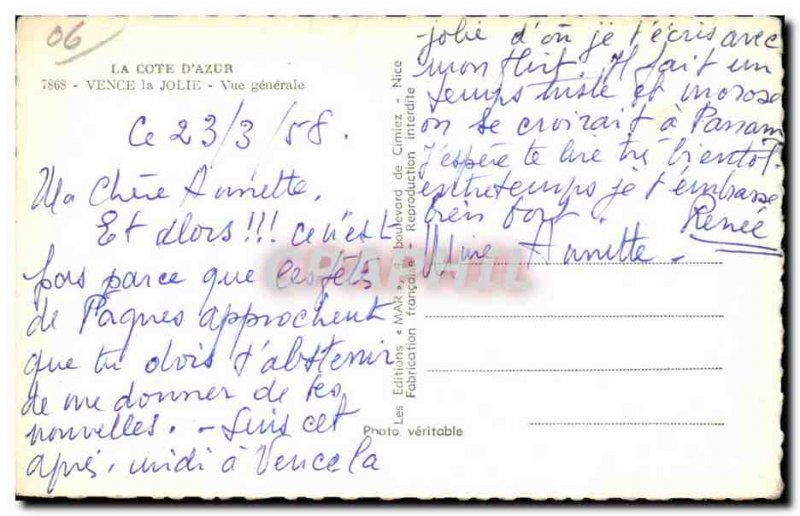 06
LA COTE D'AZUR
7868 - VENCE la JOLIE - Vue générale
Ce 23/3/58.
Ma Chère Annette,
Et alors!!! ce n'est
pas parce que les fêtes
de Pâques approchent
que tu dois t'abstenir
de me donner de tes
nouvelles. - Suis cet
après-midi à Vence la
jolie d'où je t'écris avec
mon flirt. Il fait un
temps triste et morose
on se croirait à Panam
J'espère te lire très bientôt.
entretemps je t'embrasse
bien fort. Renée
Mme Annette.
Les Editions « MAR », boulevard de Cimiez - Nice
Fabrication française - Reproduction interdite
Photo véritable
CPAPHIL